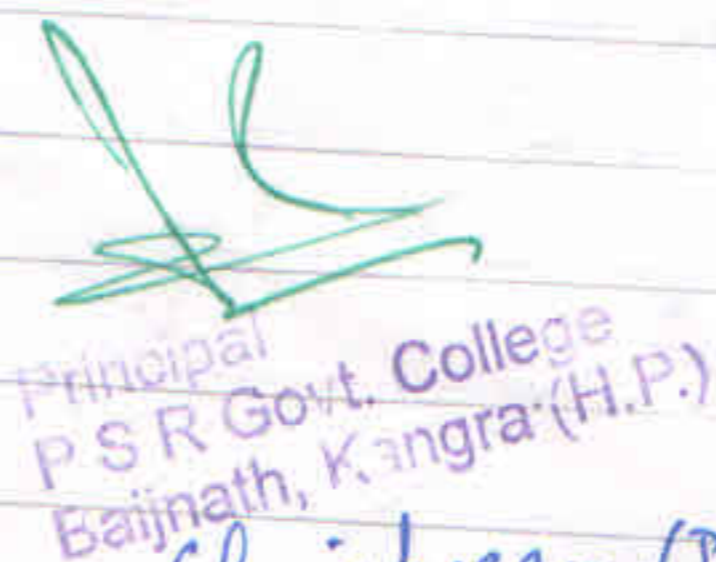 Principal
P S R Govt. College
Baijnath, Kangra (H.P.)